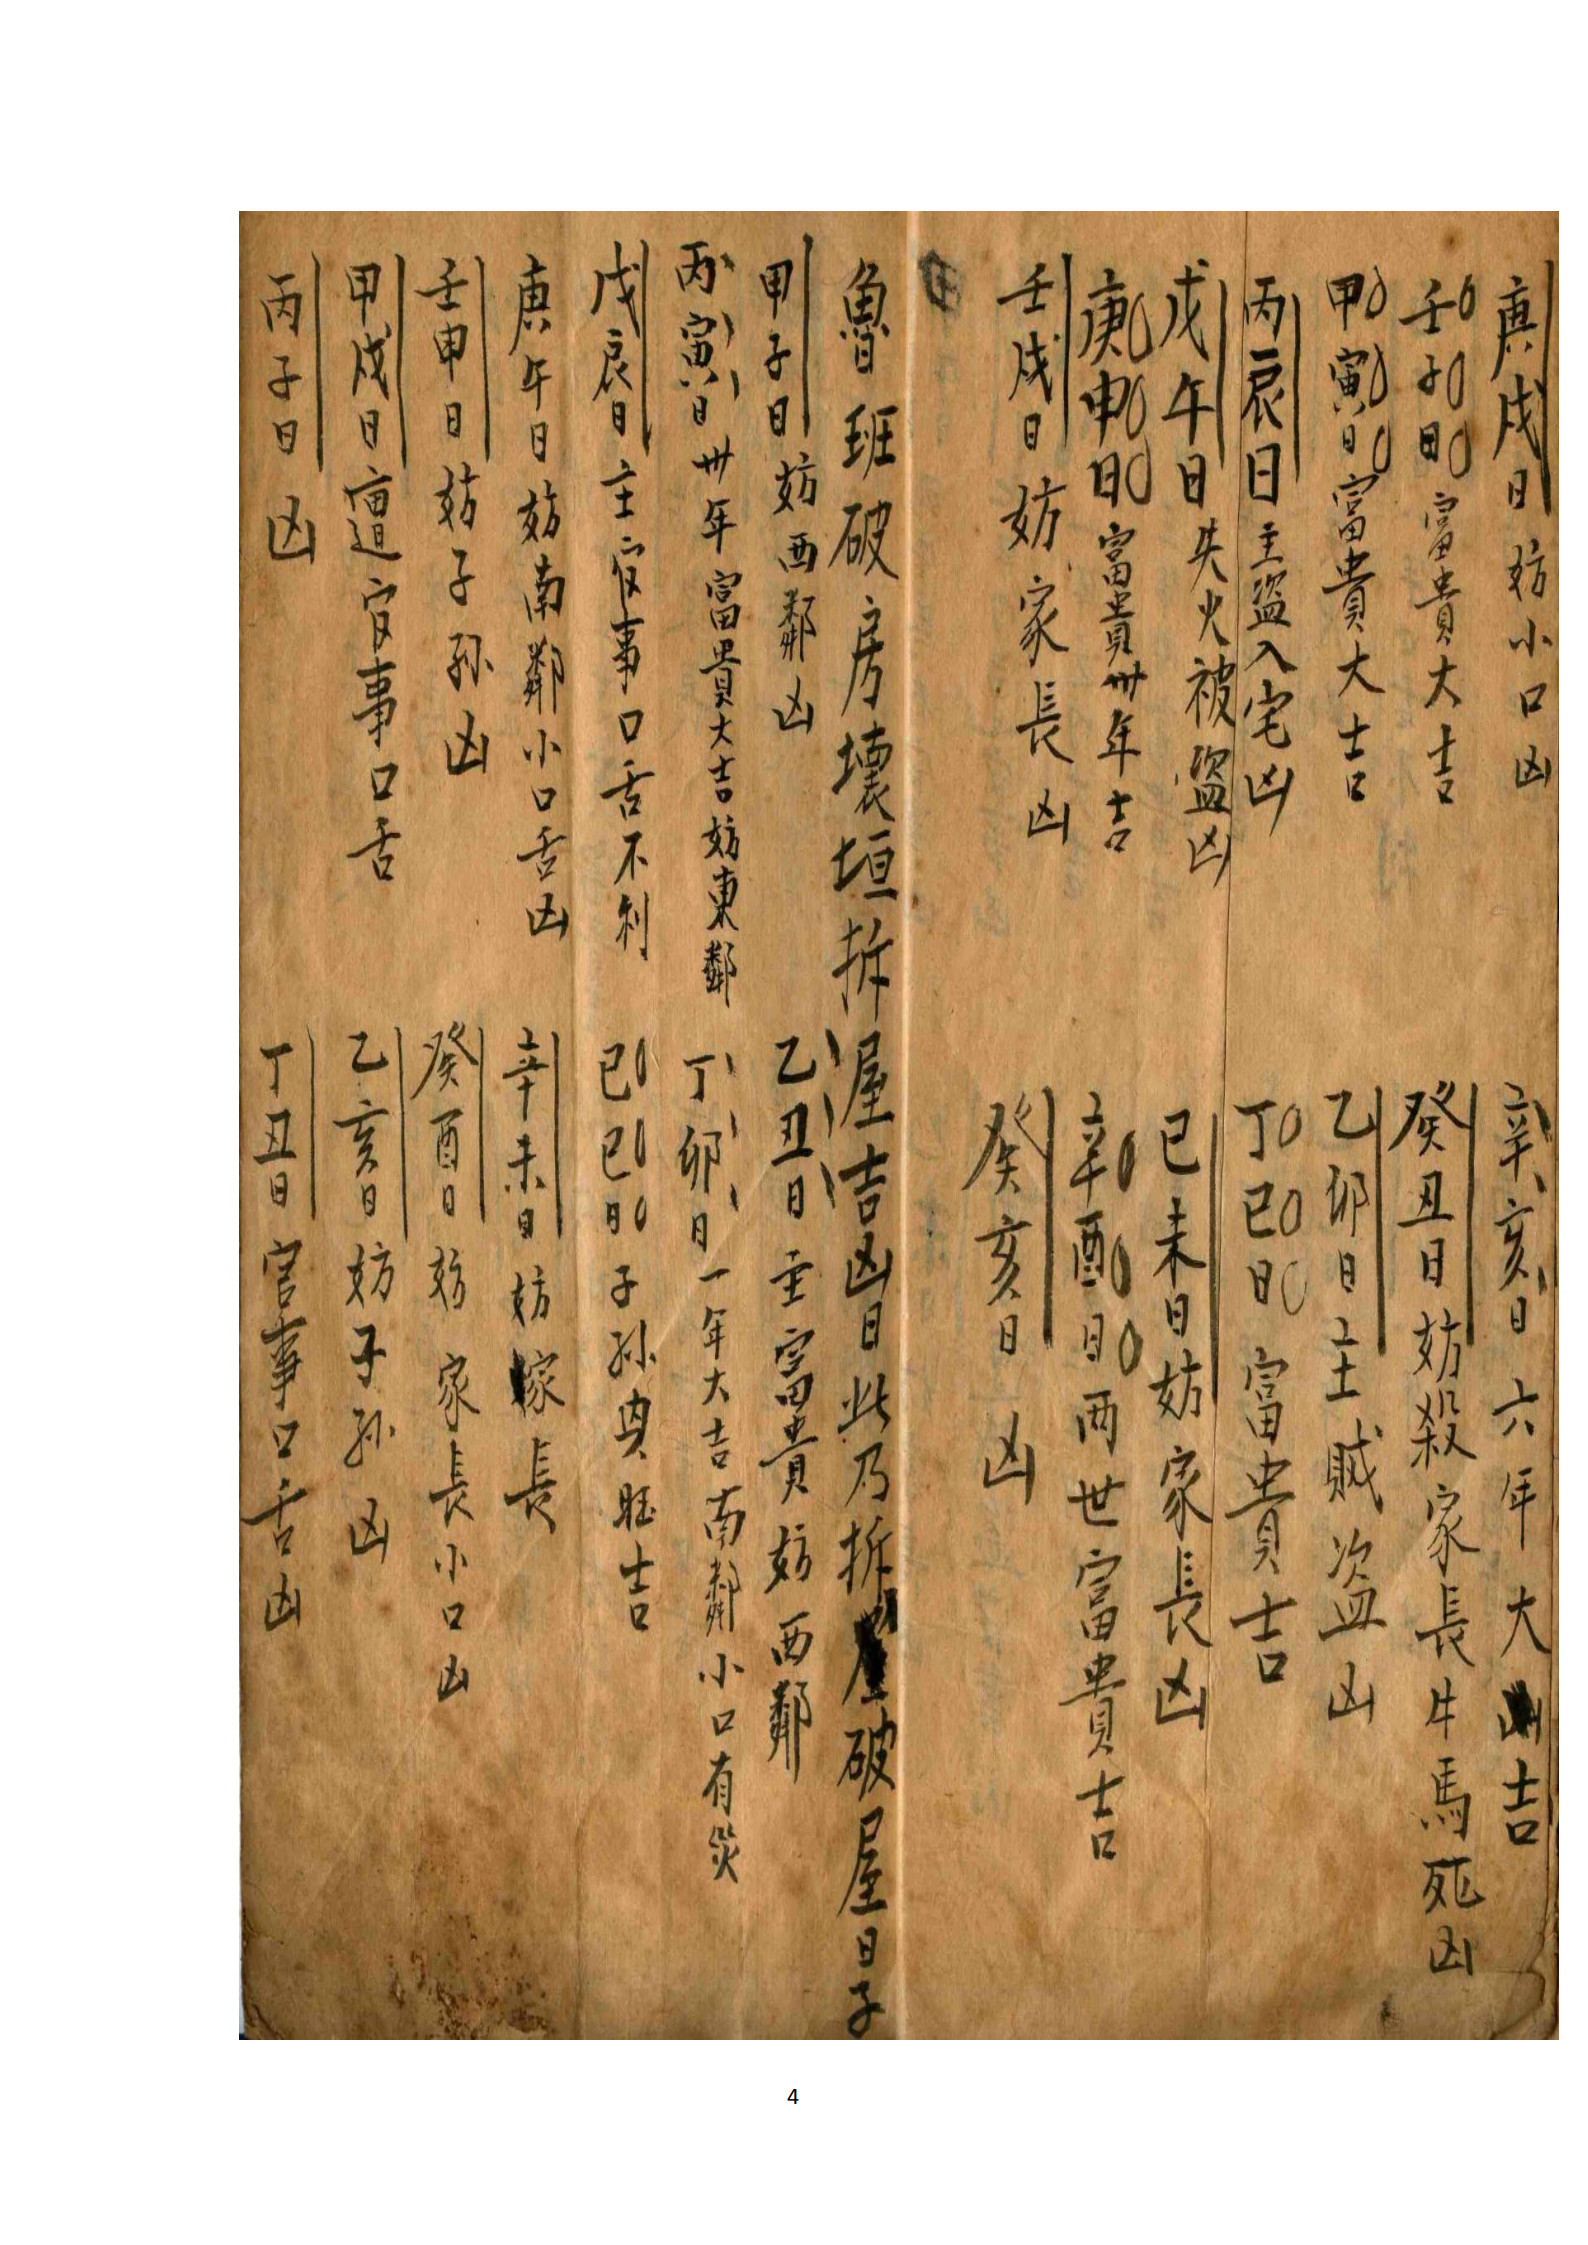 庚戍日妨小口凶
辛亥日六年大吉
壬子日富貴大吉
癸丑日妨殺家長牛馬死凶
甲寅日富貴大吉
乙卯日主賊盗凶
丙辰日主盜入宅凶
丁巳日富貴吉
戊午日失火被盜凶
己未日妨家長凶
庚申日富貴卅年吉
辛酉日两世富貴吉
壬戍日妨家長凶
癸亥日凶
魯班破房壞垣拆屋吉凶日此乃拆破屋日子
甲子日妨西鄰凶
乙丑日主富貴妨西鄰
丙寅日卅年富貴大吉妨東鄰
丁卯日一年大吉南鄰小口有災
戊辰日主官事口舌不利
己巳日子孙興旺吉
庚午日妨南鄰小口舌凶
辛未日妨家長
壬申日妨子孙凶
癸酉日妨家長小口凶
甲戍日遭官事口舌
乙亥日妨子孙凶
丙子日凶
丁丑日官事口舌凶
4